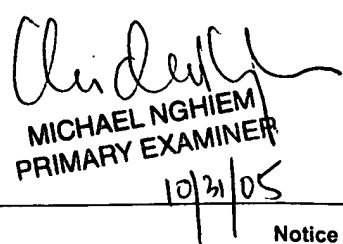 MICHAEL NGHIEM
PRIMARY EXAMINER
10/31/05
Notice